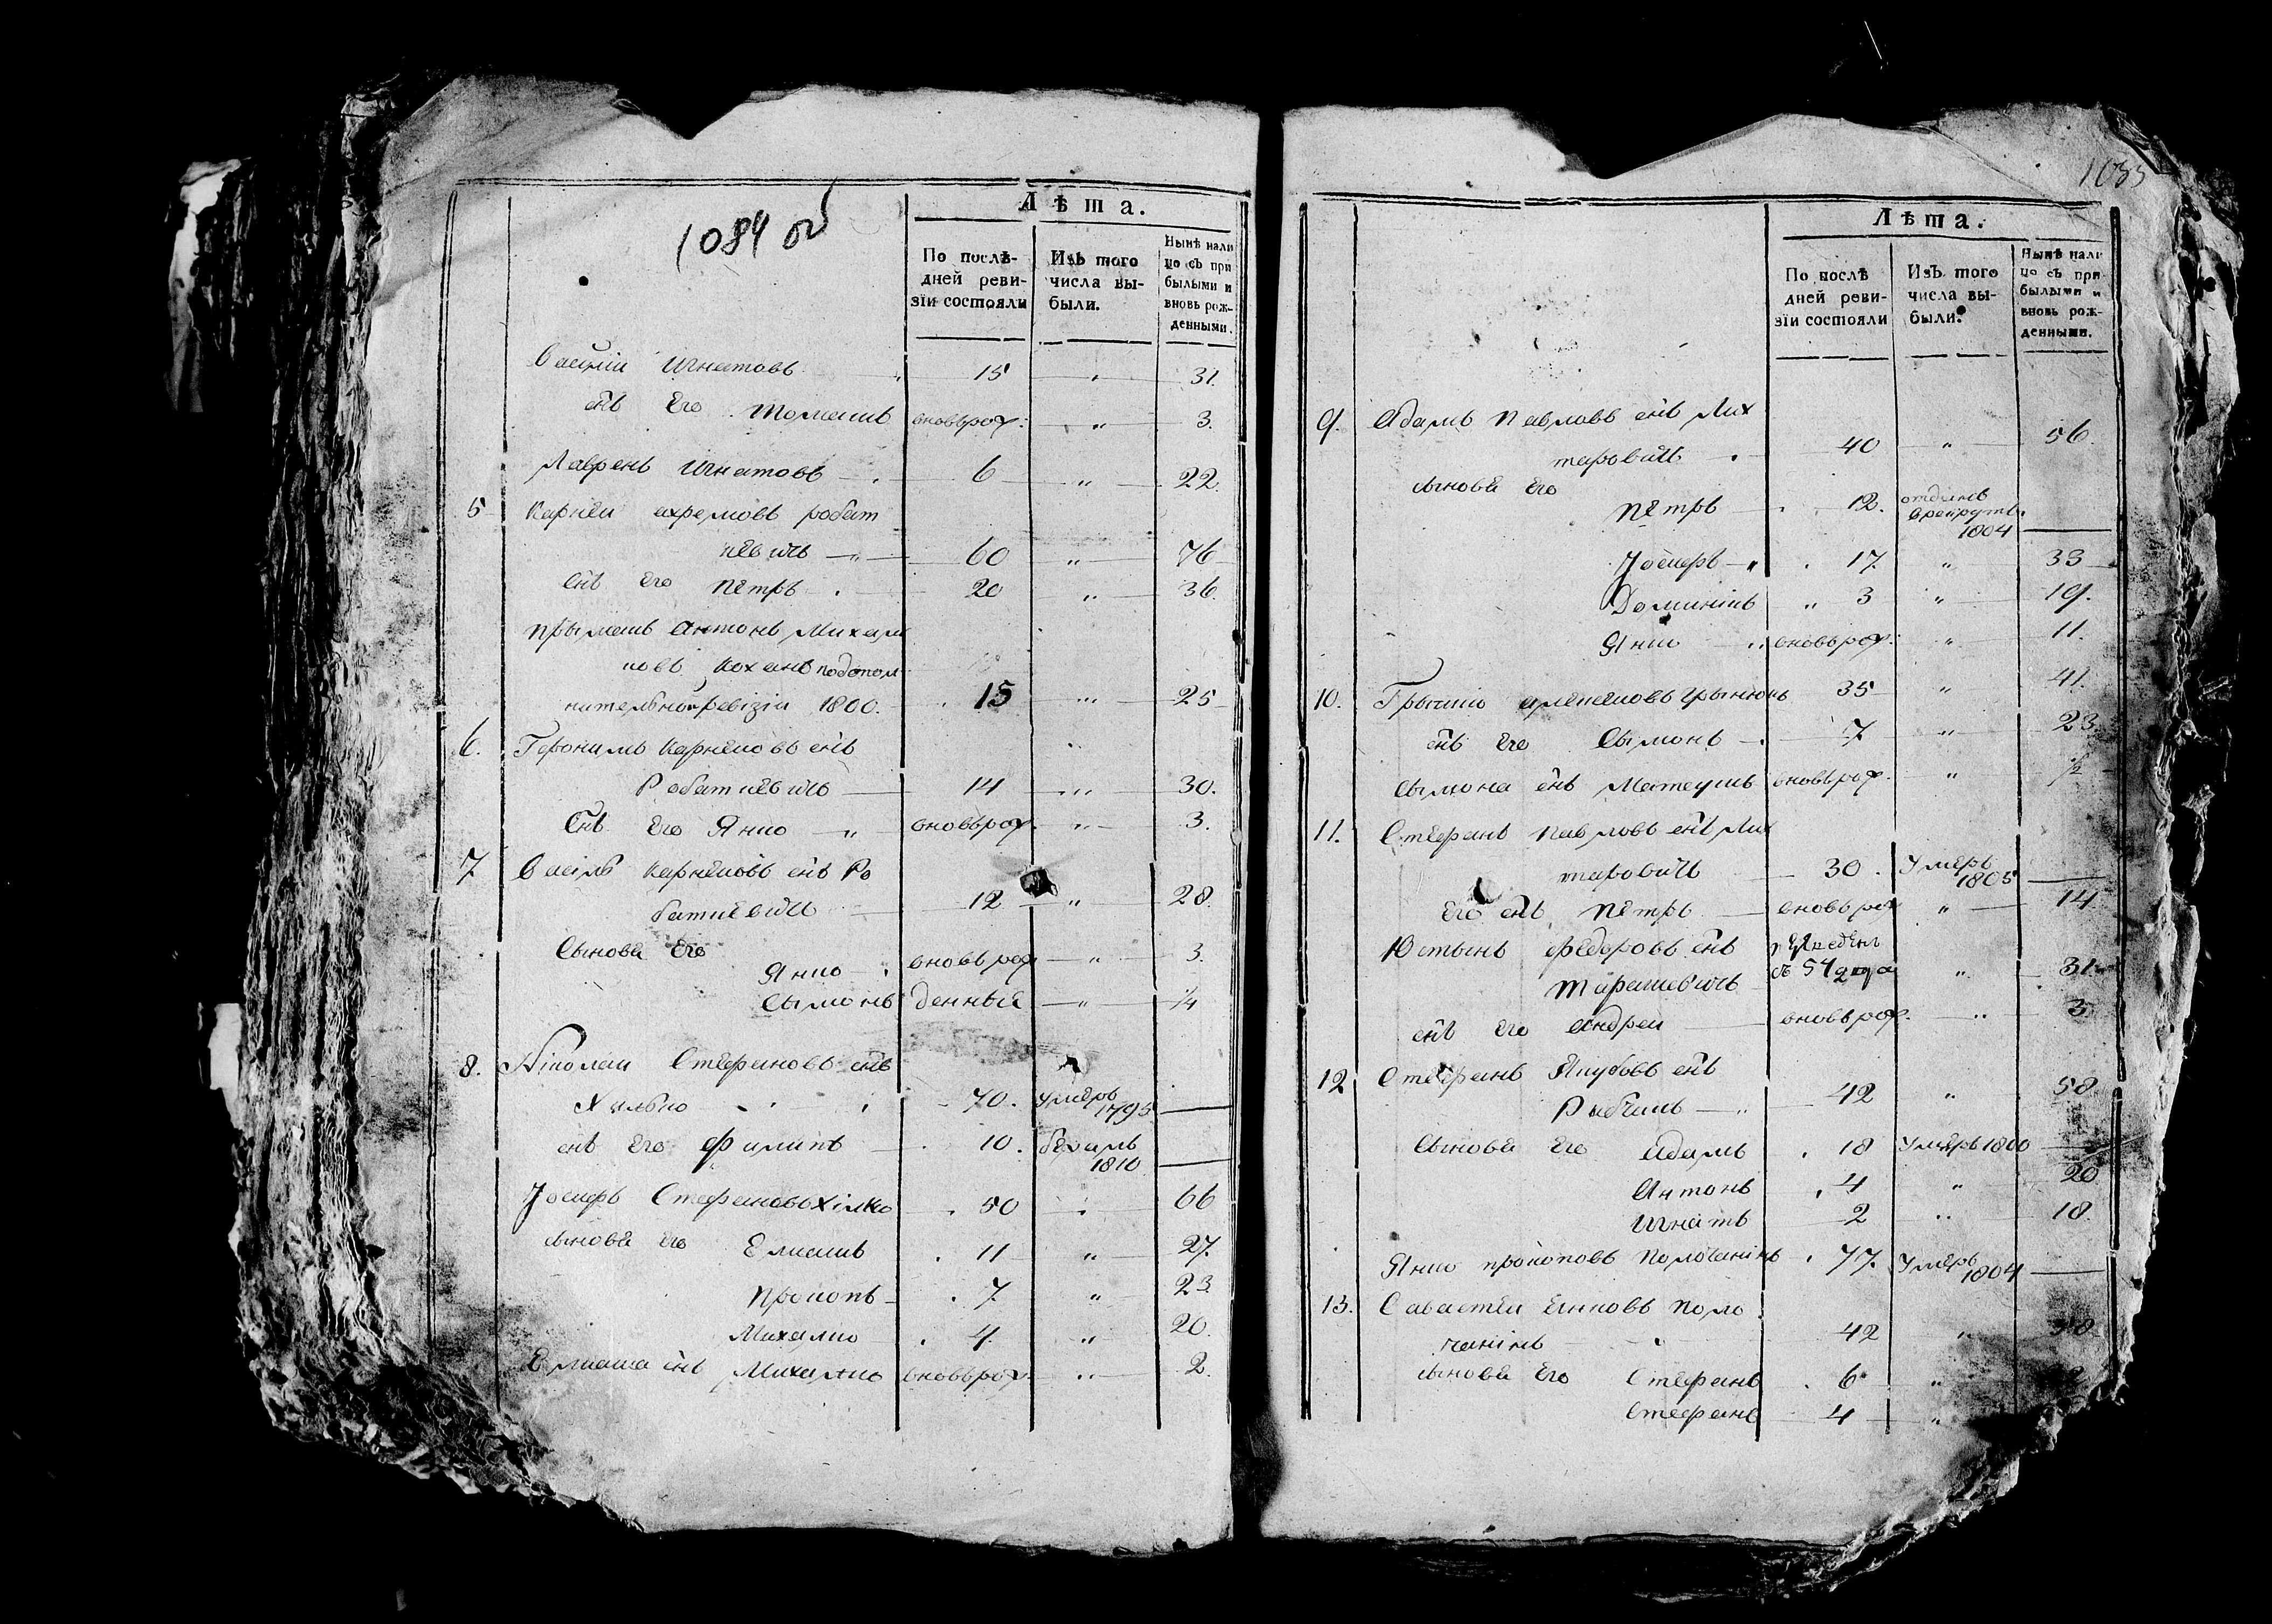 1084 об
Лѣта.
По послѣ-
дней реви-
зіи состояли
Изъ того
числа вы-
были.
Нынѣ нали
цо съ при
былыми и
вновь рож-
денными.
Василіи Игнатовъ 15 " 31.
снъ Его Томашъ вновьрож: " 3.
Лавренъ Игнатовъ 6 " 22.
5 Карнеи Ахремовъ робат
кевичъ 60 " 76
Снъ Его Петръ 20 " 36.
Прымашъ Антонъ Михаил
новъ Коханъ подопол
нительной ревізіи 1800. 15 " 25
6. Геронимъ Карнеиовъ снъ
Робаткевичъ 14 " 30.
Снъ Его Янко вновьрож. " 3.
7 Василь Карнеиовъ снъ Ро
баткевичъ 12 " 28.
Сыновя Его
Янко вновь рож " 3.
Сымонъ денныя " 1/4
8. Ніколаи Стефановъ снъ
Хилько 70. умеръ
1795
снъ Его Филипъ 10. бежалъ
1810
Іосифъ Стефановъ Хілко 50 " 66
сыновя Его Елиашъ 11 " 27.
Прокопъ 7 " 23
Михалко 4 " 20.
Елиаша снъ Михалко вновьрож " 2.
1085
Лѣта.
По послѣ
дней реви-
зіи состояли
Изъ того
числа вы-
были.
Нынѣ нали
цо съ при
былыми и
вновь рож-
денными.
9. Адамъ Павловъ снъ Лих
таровичъ 40 " 56.
сыновя Его
Петръ 12. отданъ
врекруты
1804
Іосифъ 17. " 33
Домінікъ " 3 " 19.
Янко вновьрож: " 11.
10. Грышко 35 " 41.
снъ Его Сымонъ 7 " 23
Сымона снъ Матеушъ вновьрож. " 1/2
11. Стефанъ Павловъ снъ Лих
таровичъ 30. Умеръ
1805
Его снъ Петръ вновь рож " 14.
Юстынъ Федоровъ снъ
Тарашевичъ " 31.
снъ Его Андреи вновьрож. " 3
12 Стефанъ Якубовъ снъ
Рыбчикъ 42 " 58.
Сыновя Его Адамъ 18 Умеръ 1800
Антонъ 4 " 20
Игнатъ 2 " 18.
Янко Прокоповъ Полочанінъ 77. Умеръ
1804
13. Савастеи Янковъ Поло
чанінъ 42 " 58
сыновя Его Стефанъ 6 "
Стефанъ 4 "